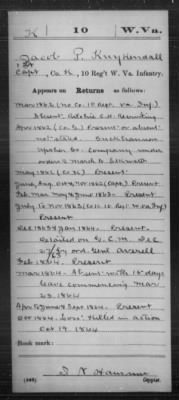 K 10 W.Va.
Jacob P. Kuykendall
1 Lt
Capt, Co. K, 10 Reg't W. Va. Infantry.
Appears on Returns as follows:
Mar 1862 (no Co. 10 Regt. Va. Inf.)
Absent Ritchie C.H. Recruiting
Apr 1862 Present or absent
not stated. Buckhannon
Upshur Co. Company under
orders to March to
May 1862 Present
June, Aug. Oct & Nov 1862 Present
Feb. Mar. May & June 1863. Present
July to Nov 1863 (Co. K 10 Regt. W. Va. Inf)
Present
Dec 1863 & Jan 1864.
detailed on G.C.M. Dec
by ord Genl Averell
Feb 1864. Present
Mar 1864. Absent with 15 days
leave commencing Mar
23 1864
Apr & June & Sept 1864. Present
Oct 1864. Loss: Killed in action
Oct 19. 1864
Book mark:
Copyist.